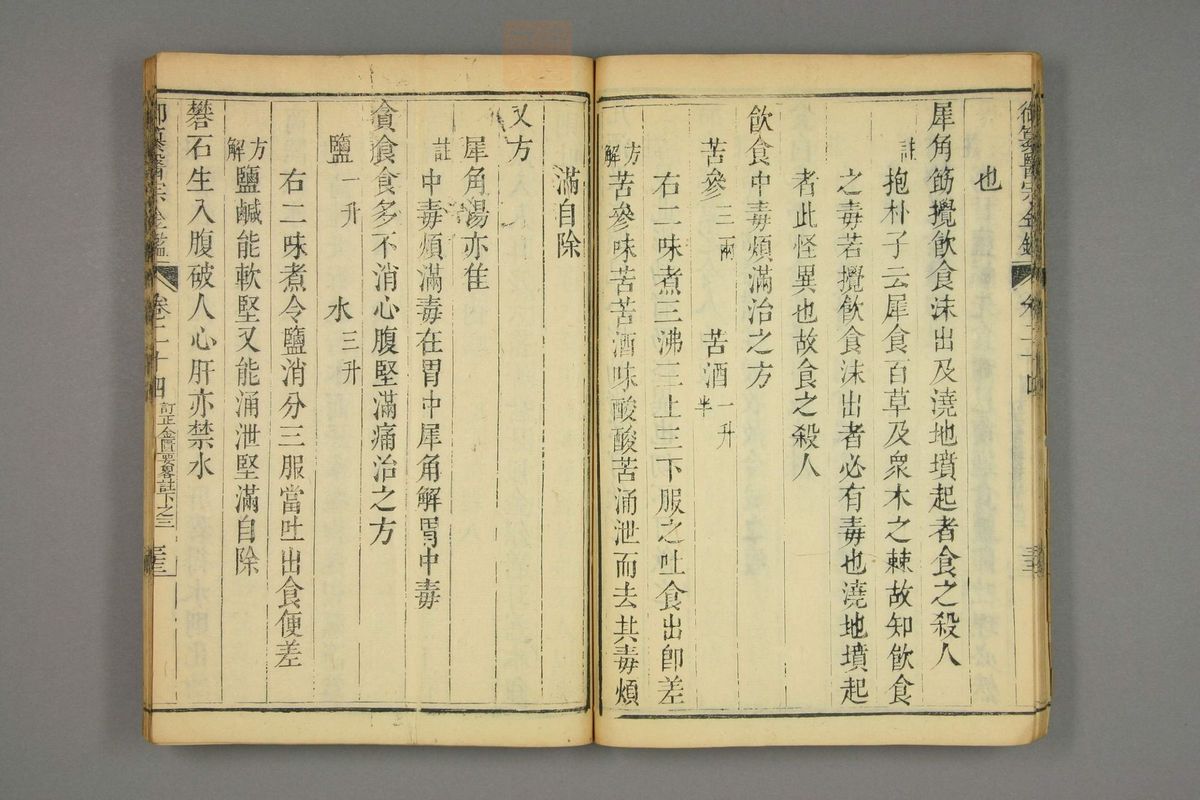 也
犀角筯攪飲食沫出及澆地墳起者食之殺人
註 抱朴子云犀食百草及衆木之棘故知飲食
之毒若攪飲食沫出者必有毒也澆地墳起
者此怪異也故食之殺人
飲食中毒煩滿治之方
苦參三兩 苦酒一升半
右二味煮三沸三上三下服之吐食出卽差
方解 苦參味苦苦酒味酸酸苦涌泄而去其毒煩
滿自除
又方
犀角湯亦佳
註 中毒煩滿毒在胃中犀角解胃中毒
貪食食多不消心腹堅滿痛治之方
鹽一升 水三升
右二味煮令鹽消分三服當吐出食便差
方解 鹽鹹能軟堅又能涌泄堅滿自除
礬石生入腹破人心肝亦禁水
御纂醫宗金鑑 卷二十四 訂正金匱要畧註下之三